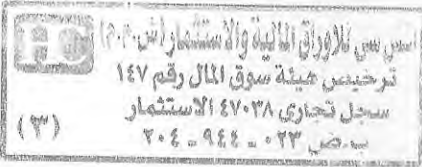 اتش سى للاوراق المالية والاستثمار (ش.م.م)
ترخيص هيئة سوق المال رقم ١٤٧
سجل تجارى ٤٧٠٣٨ الاستثمار
ب.ض ٠٢٣ - ٩٤٤ - ٢٠٤
(٣)